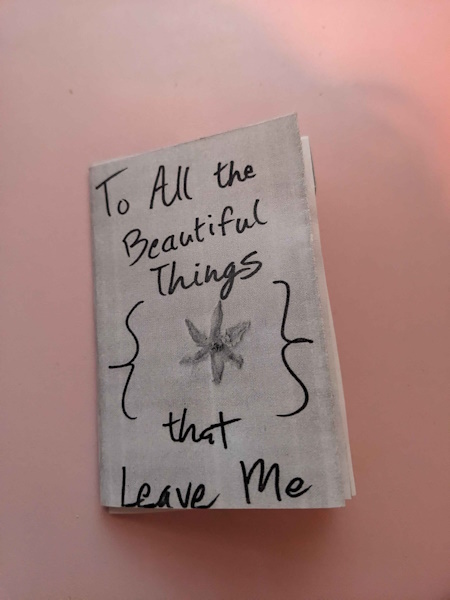 To All the
Beautiful
Things
that
Leave Me